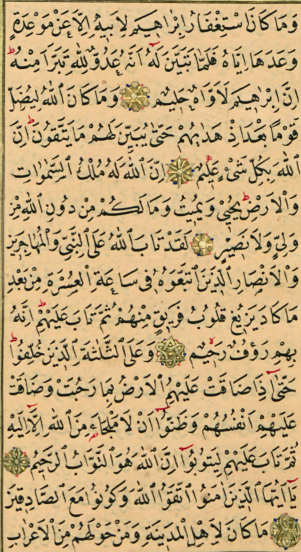 وَمَا كَانَ اسْتِغْفَارُ اِبْرٰهِيمَ لِاَبِيهِ اِلَّا عَنْ مَوْعِدَةٍ
وَعَدَهَا اِيَّاهُ فَلَمَّا تَبَيَّنَ لَهُ اَنَّهُ عَدُوٌّ لِلّٰهِ تَبَرَّاَ مِنْهُ
اِنَّ اِبْرٰهِيمَ لَاَوَّاهٌ حَلِيمٌ وَمَا كَانَ اللّٰهُ لِيُضِلَّ
قَوْمًا بَعْدَ اِذْ هَدٰيهُمْ حَتّٰى يُبَيِّنَ لَهُمْ مَا يَتَّقُونَ اِنَّ
اللّٰهَ بِكُلِّ شَيْءٍ عَلِيمٌ اِنَّ اللّٰهَ لَهُ مُلْكُ السَّمٰوَاتِ
وَالْاَرْضِ يُحْيِي وَيُمِيتُ وَمَا لَكُمْ مِنْ دُونِ اللّٰهِ مِنْ
وَلِيٍّ وَلَا نَصِيرٍ لَقَدْ تَابَ اللّٰهُ عَلَى النَّبِيِّ وَالْمُهَاجِرِينَ
وَالْاَنْصَارِ الَّذِينَ اتَّبَعُوهُ فِي سَاعَةِ الْعُسْرَةِ مِنْ بَعْدِ
مَا كَادَ يَزِيغُ قُلُوبُ فَرِيقٍ مِنْهُمْ ثُمَّ تَابَ عَلَيْهِمْ اِنَّهُ
بِهِمْ رَؤُفٌ رَحِيمٌ وَعَلَى الثَّلٰثَةِ الَّذِينَ خُلِّفُوا
حَتّٰى اِذَا ضَاقَتْ عَلَيْهِمُ الْاَرْضُ بِمَا رَحُبَتْ وَضَاقَتْ
عَلَيْهِمْ اَنْفُسُهُمْ وَظَنُّوا اَنْ لَا مَلْجَاَ مِنَ اللّٰهِ اِلَّا اِلَيْهِ
ثُمَّ تَابَ عَلَيْهِمْ لِيَتُوبُوا اِنَّ اللّٰهَ هُوَ التَّوَّابُ الرَّحِيمُ
يَا اَيُّهَا الَّذِينَ اٰمَنُوا اتَّقُوا اللّٰهَ وَكُونُوا مَعَ الصَّادِقِينَ
مَا كَانَ لِاَهْلِ الْمَدِينَةِ وَمَنْ حَوْلَهُمْ مِنَ الْاَعْرَابِ